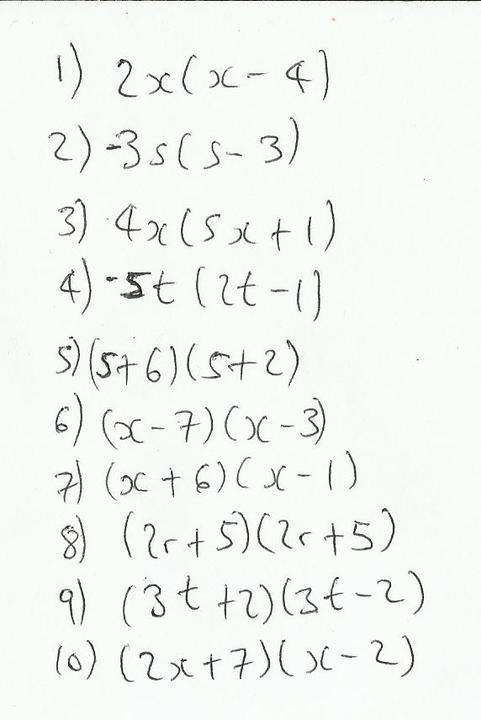 1) 2x(x-4)
2) -3s(s-3)
3) 4x(5x+1)
4) -5t(2t-1)
5) (s+6)(s+2)
6) (x-7)(x-3)
7) (x+6)(x-1)
8) (2r+5)(2r+5)
9) (3t+2)(3t-2)
10) (2x+7)(x-2)